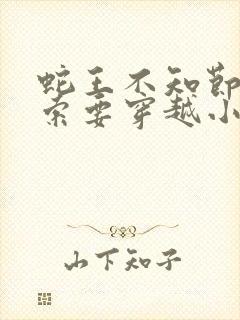 蛇王不知节
索要穿越小
山下知子